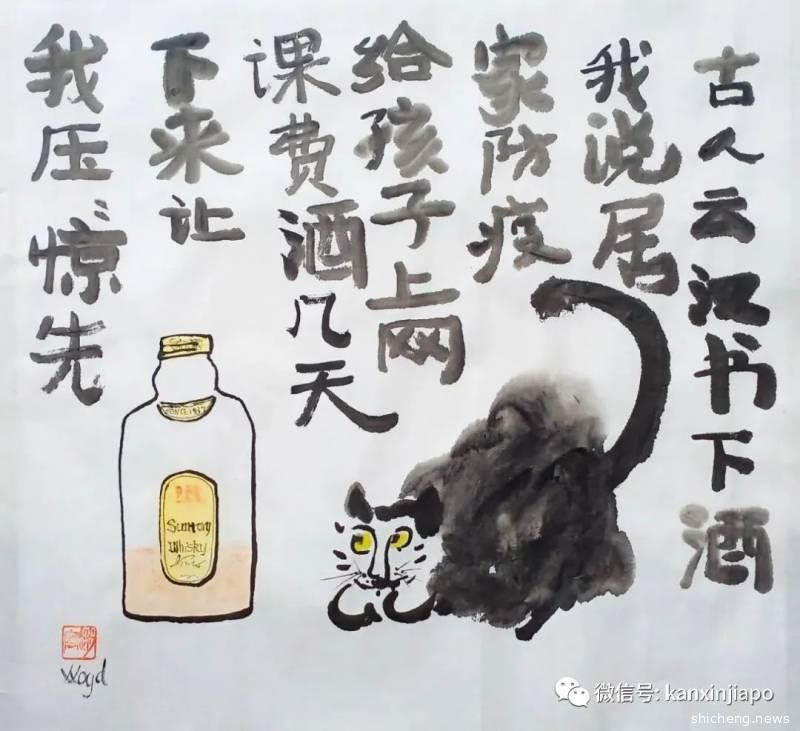 古人云汉书下酒
我说居
家防疫
给孩子上网
课费酒几天
下来让
我压惊先
Suntory
Whisky
微信号: kanxinjiapo
shicheng.news